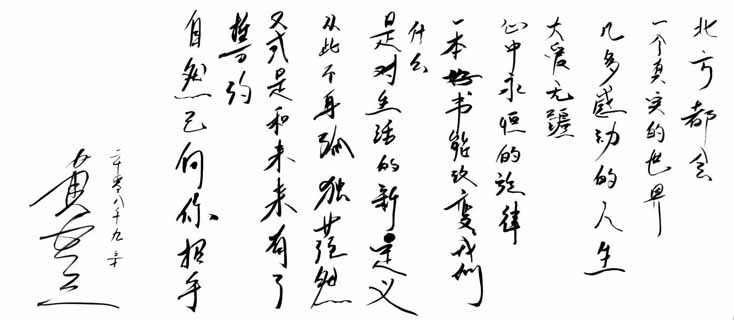 北方都会
一个真实的世界
几多感动的人生
大爱无疆
心中永恒的旋律
一本好书能改变我们
什么
是对生活的新定义
从此不再孤独茫然
又或是和未来有了
誓约
自然已向你招手
八十九
黄